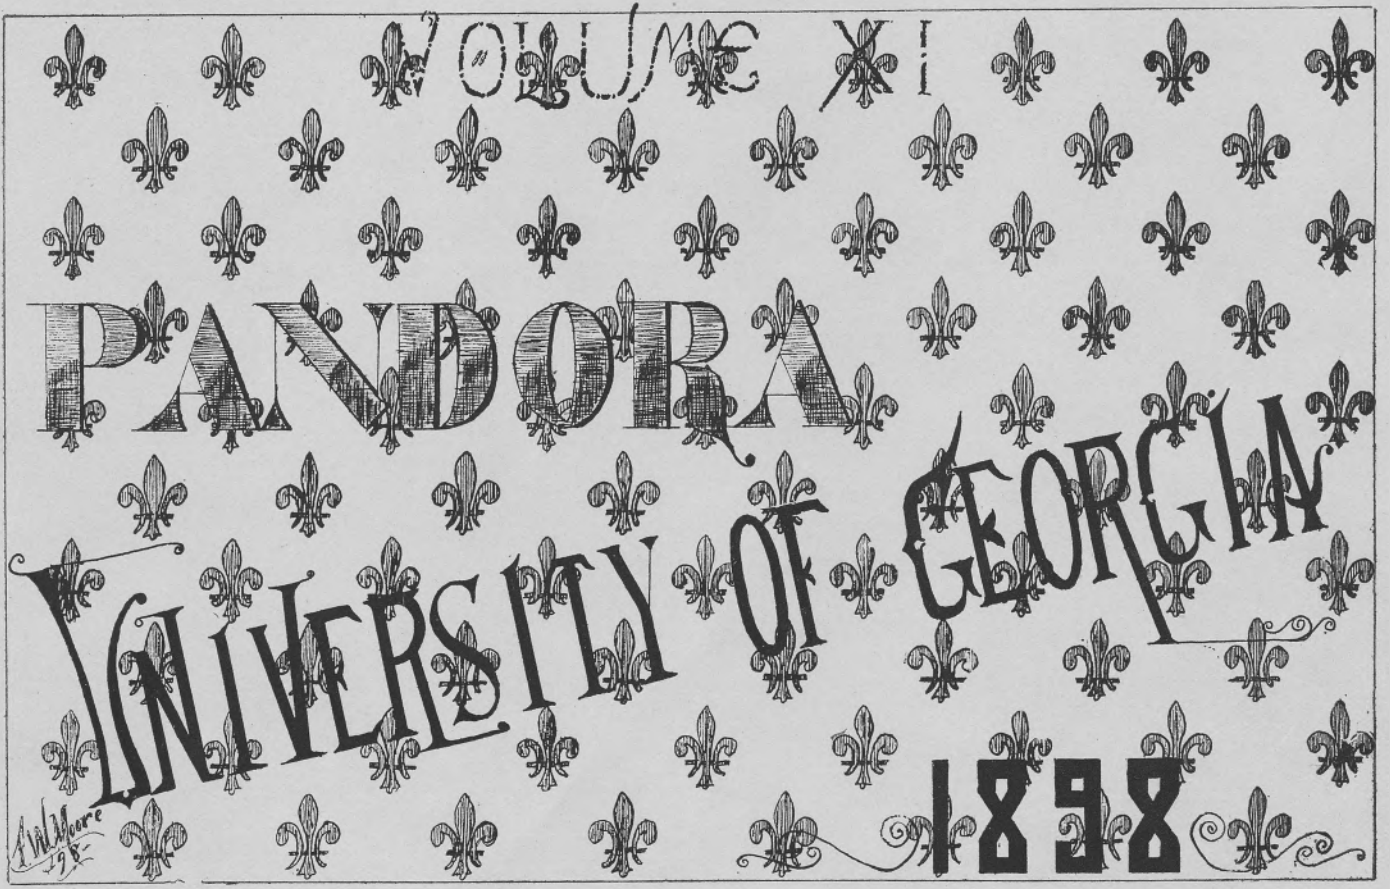 VOLUME XI
PANDORA
UNIVERSITY OF GEORGIA
1898
F.W. Moore
'98-